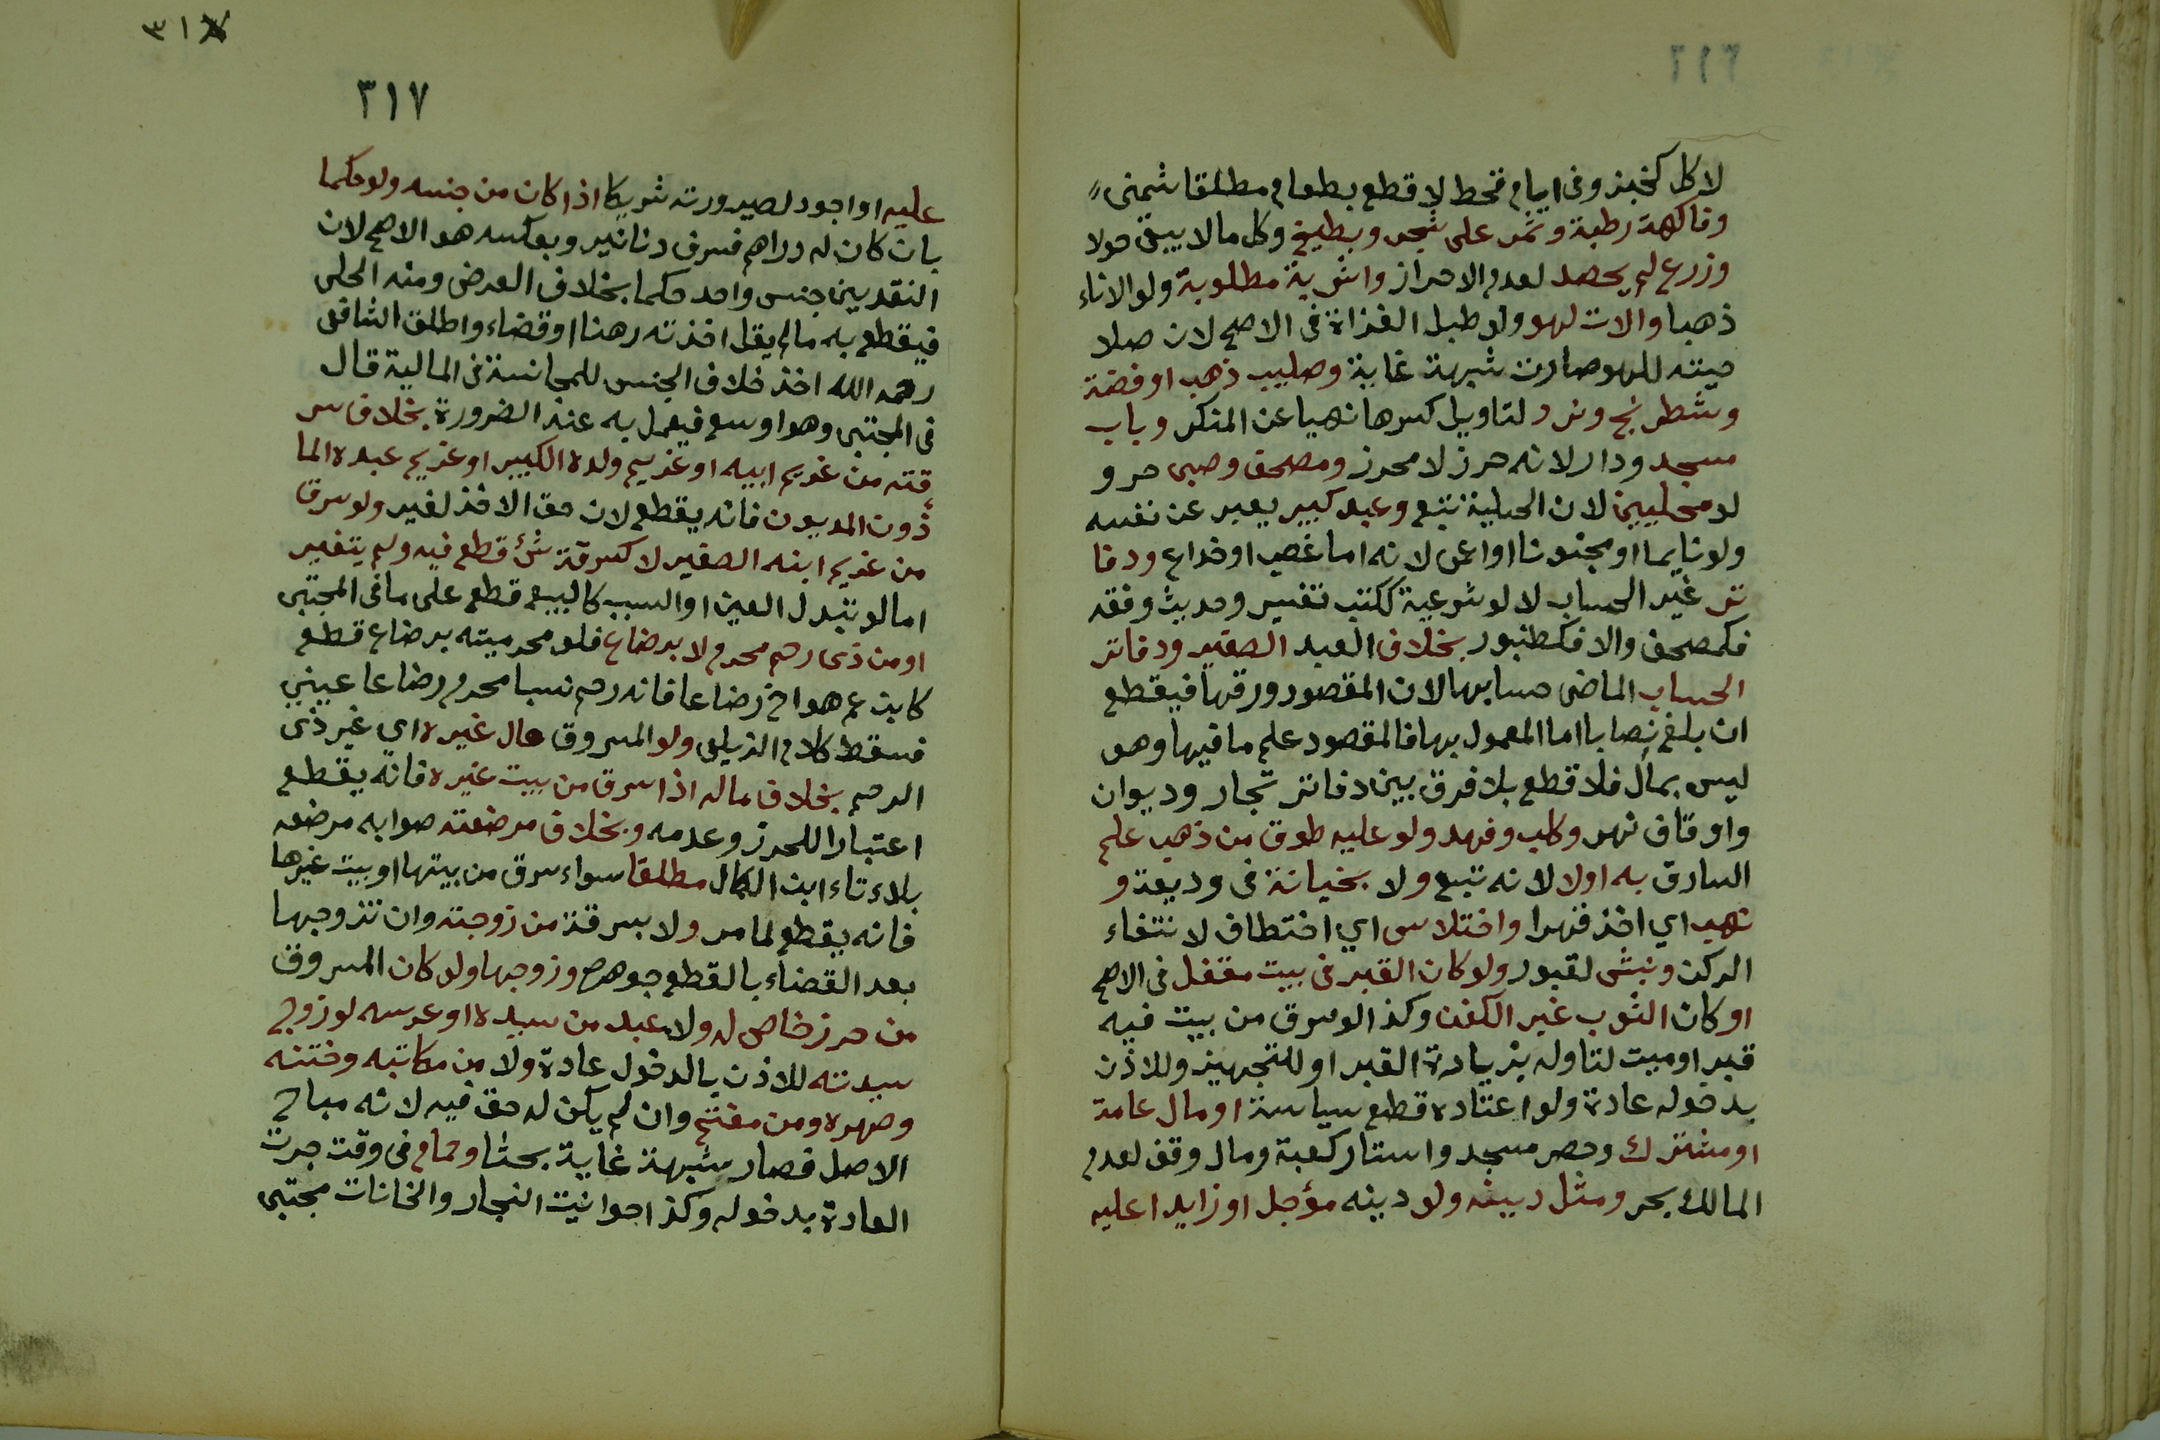 لاكل كخبز وفى ايام قحط لا قطع بطعام مطلقا شمنى
وفاكهة رطبة وثمر على شجر وبطيخ وكل مالا يبقى حولا
وزرع لم يحصد لعدم الاحراز واشربة مطلوبة ولو الاناء
ذهبا والات لهو ولو طبل الغزاة فى الاصح لان صلا
حيته للهو صارت شبهة غاية وصليب ذهب او فضة
وشطرنج ونرد لتاويل كسرها نهيا عن المنكر وباب
مسجد ودار لانه حرز لا محرز ومصحف وصبى حر و
لو محليين لان الحلية تتبع وعبد كبير يعبر عن نفسه
ولو نايما او مجنونا او اعمى لانه اما غصب او خداع ودفا
تر غير الحساب لا لو شرعية ككتب تفسير وحديث وفقه
فكمصحف والا فكطنبور بخلاف العبد الصغير ودفاتر
الحساب الماضى حسابها لان المقصود ورقها فيقطع
ان بلغ نصابا اما المعمول بها فالمقصود علم ما فيها وهو
ليس بمال فلا قطع بلا فرق بين دفاتر تجار وديوان
واوقاف نهر وكلب وفهد ولو عليه طوق من ذهب علم
السارق به اولا لانه تبع ولا بخيانة فى وديعة و
نهب اي اخذ قهرا واختلاس اي اختطاف لانتفاء
الركن ونبش لقبور ولو كان القبر فى بيت مقفل فى الاصح
او كان الثوب غير الكفن وكذا لو سرق من بيت فيه
قبر او ميت لتاوله بزيارة القبر او للتجهيز وللاذن
بدخوله عادة ولو اعتاده قطع سياسة او مال عامة
او مشترك وحصر مسجد واستار كعبة ومال وقف لعدم
المالك بحر ومثل دينه ولو دينه مؤجل او زايدا عليه
٣١
٣١٧
عليه او اجود لصيرورته شريكا اذا كان من جنسه ولو حكما
بان كان له دراهم فسرق دنانير وبعكسه هو الاصح لان
النقدين جنس واحد حكما بخلاف العرض ومنه الحلى
فيقطع به مالم يقل اخذته رهنا او قضاء واطلق الشافعى
رحمه الله اخذ خلاف الجنس للمجانسة فى المالية قال
فى المجتبى وهو اوسع فيعمل به عند الضرورة بخلاف سر
قته من غريم ابيه او غريم ولده الكبير او غريم عبده الما
ذون المديون فانه يقطع لان حق الاخذ لغيره ولو سرق
من غريم ابنه الصغير لا كسرقة شئ قطع فيه ولم يتغير
اما لو تبدل العين او السبب كالبيع قطع على ما فى المجتبى
او من ذى رحم محرم لا برضاع فلو محرميته برضاع قطع
كابن عم هو اخ رضاعا فانه رحم نسبا محرم رضاعا عينى
فسقط كلام الزيلعى ولو المسروق مال غيره اي غير ذى
الرحم بخلاف ماله اذا سرق من بيت غيره فانه يقطع
اعتبارا للحرز وعدمه وبخلاف مرضعته صوابه مرضعه
بلا تاء ابن الكمال مطلقا سواء سرق من بيتها او بيت غيرها
فانه يقطع لما مر ولا بسرقة من زوجته وان تزوجها
بعد القضاء بالقطع جوهره وزوجها ولو كان المسروق
من حرز خاص له ولا عبد من سيده او عرسه لو زوج
سيدته للاذن بالدخول عادة ولا من مكاتبه وختنه
وصهره ومن مغنم وان لم يكن له حق فيه لانه مباح
الاصل فصار شبهة غاية بحثا وحمام فى وقت جرت
العادة بدخوله وكذا حوانيت التجار والخانات مجتبى